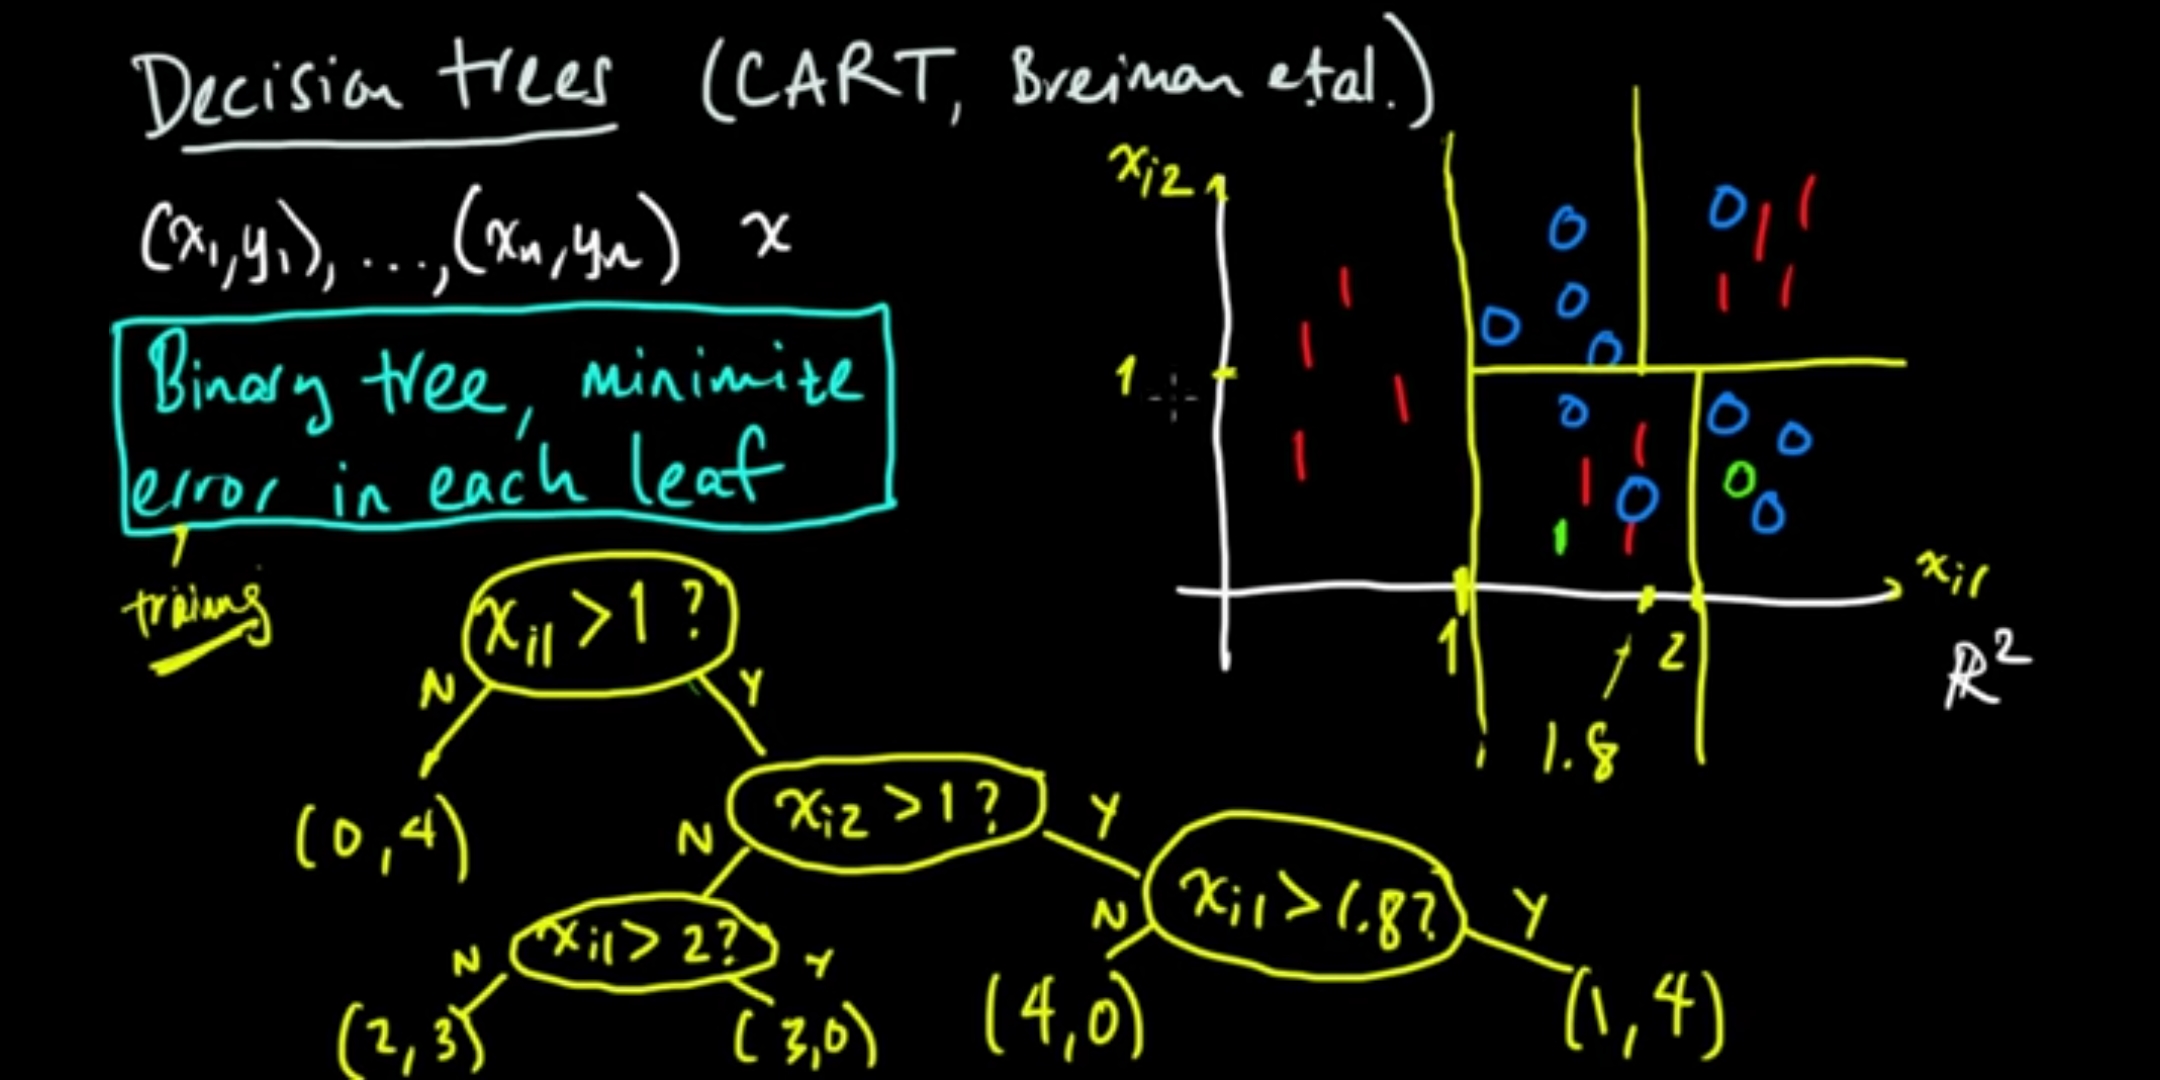 Decision trees (CART, Breiman et al.)
(x₁,y₁), ...,(xₙ,yₙ) x
Binary tree, minimize
error in each leaf
training
x_{i1} > 1 ?
N Y
(0,4)
x_{i2} > 1 ?
N Y
x_{i1} > 2 ?
N Y
(2,3) (3,0)
x_{i1} > 1.8 ?
N Y
(4,0) (1,4)
x_{i2}
1
x_{i1}
1 2
1.8
ℝ²